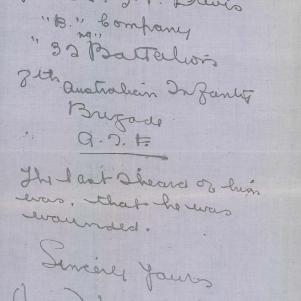 Lewis
"B." Company
" 32nd Battalion
8th Australian Infantry
Brigade
" A. I. F.
The last I heard of him
was, that he was
wounded.
Sincerely Yours